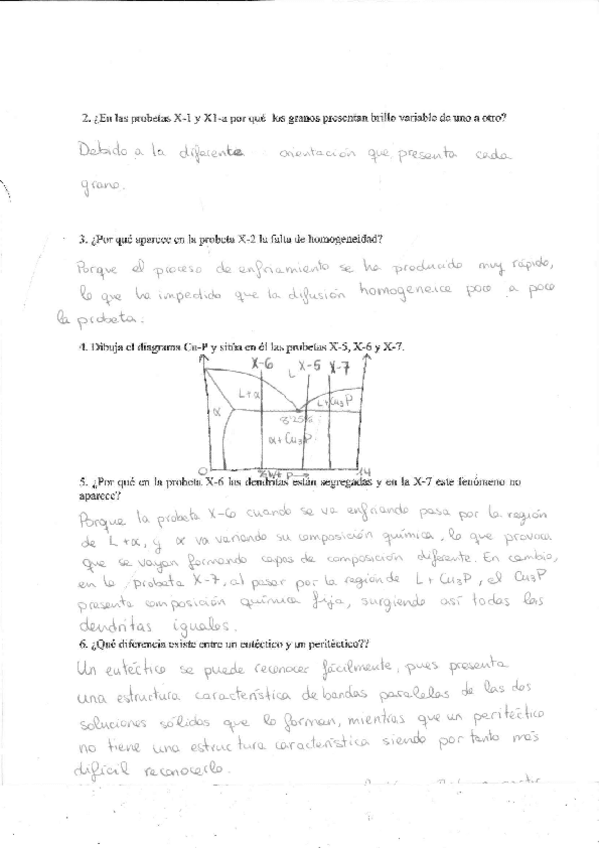 2. ¿En las probetas X-1 y X1-a por qué los granos presentan brillo variable de uno a otro?
Debido a la diferente orientación que presenta cada
grano.
3. ¿Por qué aparece en la probeta X-2 la falta de homogeneidad?
Porque el proceso de enfriamiento se ha producido muy rápido,
lo que ha impedido que la difusión homogeneice poco a poco
la probeta.
4. Dibuja el diagrama Cu-P y sitúa en él las probetas X-5, X-6 y X-7.
X-6 L X-5 X-7
L+α
L+Cu3P
α
8'25%
α+Cu3P
0 % Wt P 14
5. ¿Por qué en la probeta X-6 las dendritas están segregadas y en la X-7 este fenómeno no
aparece?
Porque la probeta X-6 cuando se va enfriando pasa por la región
de L+α, y α va variando su composición química, lo que provoca
que se vayan formando capas de composición diferente. En cambio,
en la probeta X-7, al pasar por la región de L+Cu3P, el Cu3P
presenta composición química fija, surgiendo así todas las
dendritas iguales.
6. ¿Qué diferencia existe entre un eutéctico y un peritéctico??
Un eutéctico se puede reconocer fácilmente, pues presenta
una estructura característica de bandas paralelas de las dos
soluciones sólidas que lo forman, mientras que un peritéctico
no tiene una estructura característica siendo por tanto más
difícil reconocerlo.